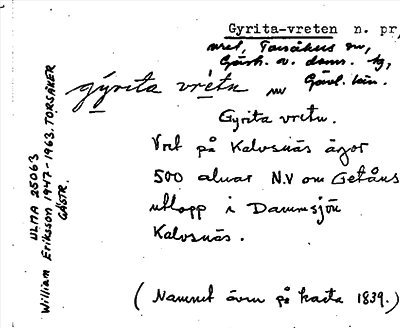 Gyrita-vreten n. pr,
vret, Torsåkers sn,
Gästr. ö. doms. hg,
Gävl. län.
gýrita vrétn
Gyrita vretn.
Vret på Kalvsnäs ägor
500 alnar N.V om Getåns
utlopp i Dammsjön
Kalvsnäs.
(Namnet även på karta 1839.)
ULMA 25063
William Eriksson 1947-1963. TORSÅKER
GÄSTR.